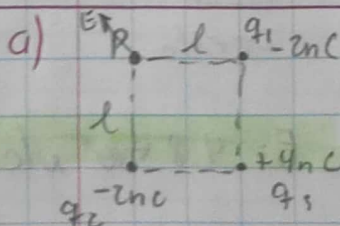 a) ET R l q1 -2nC
l
-2nC +4nC
q2 q3